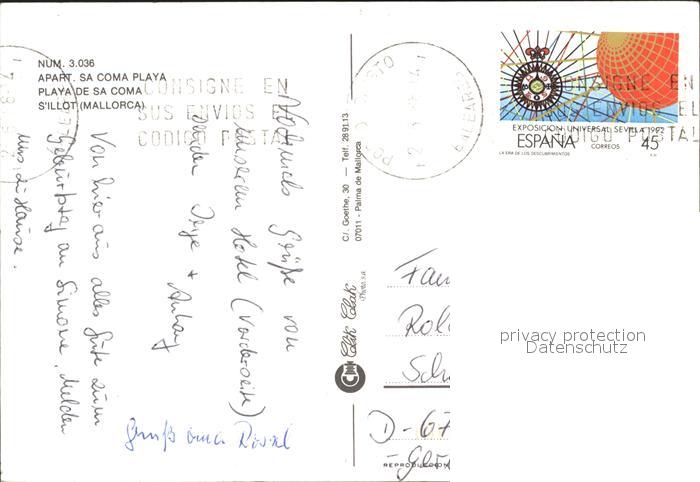 NUM. 3.036
APART. SA COMA PLAYA
PLAYA DE SA COMA
S'ILLOT (MALLORCA)
CONSIGNE EN
SUS ENVIOS EL
CODIGO POSTAL
Nochmals Grüße von
unserem Hotel (Vorderseite)
senden
+ Anhang
Von hier aus alles Gute zum
Geburtstag an Simone, melden
uns zu Hause.
Gruß
C/. Goethe, 30 — Telf. 28 91 13
07011 - Palma de Mallorca
Clik Clak
Photo s.a.
EXPOSICION UNIVERSAL SEVILLA 1992
ESPAÑA CORREOS 45
LA ERA DE LOS DESCUBRIMIENTOS
CONSIGNE EN
SUS ENVIOS EL
CODIGO POSTAL
Fam
Rol
Sch
D-67
REPRODUCCION
privacy protection
Datenschutz